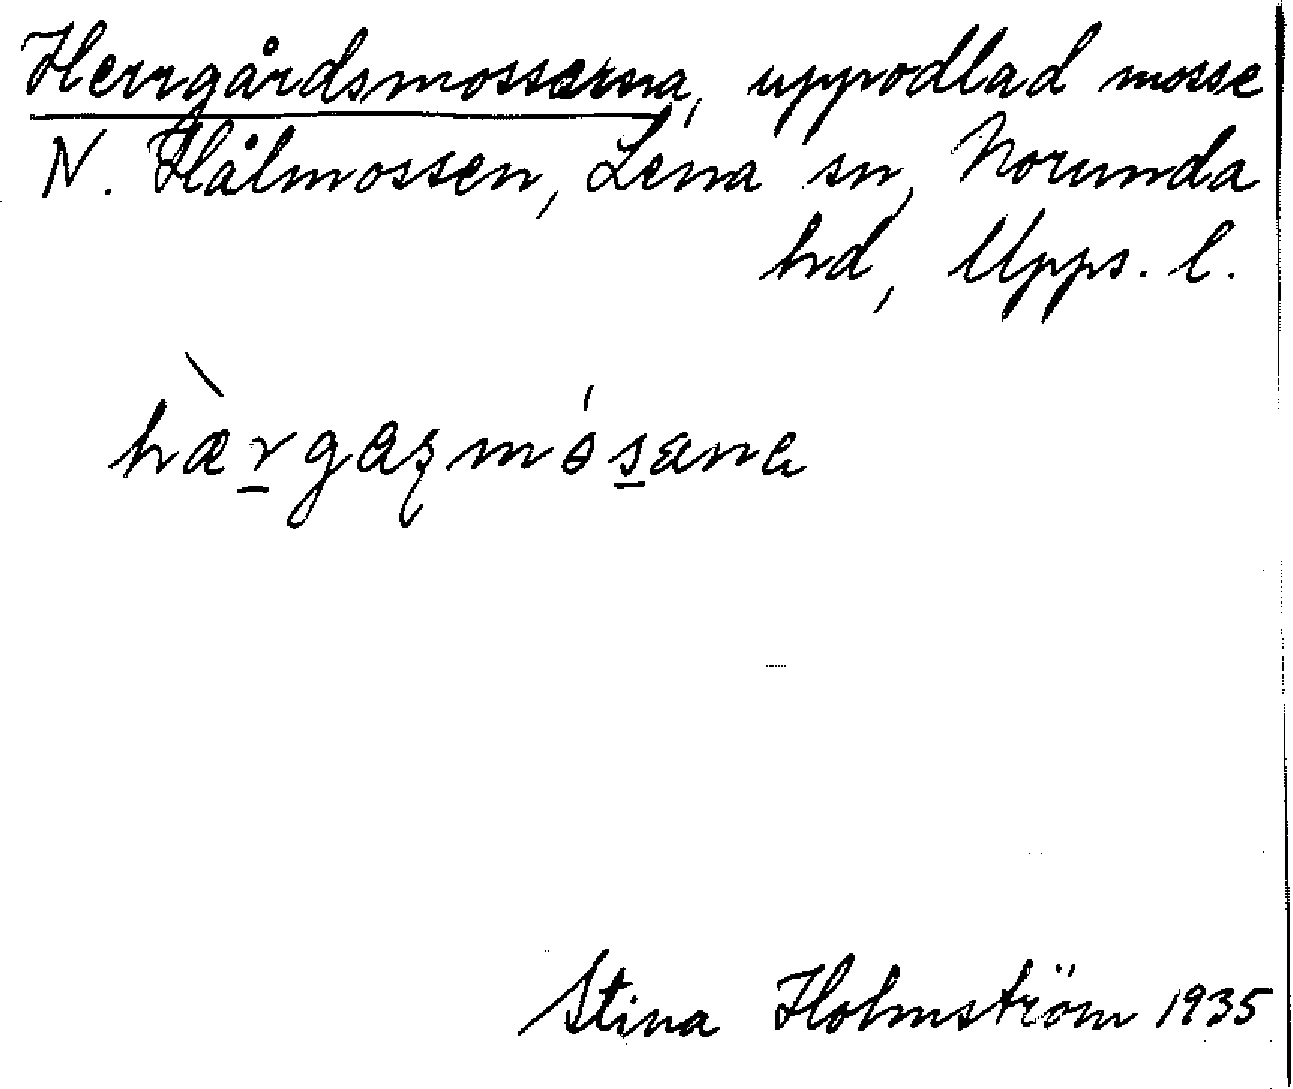 Herrgårdsmossarna, uppodlad mosse
N. Hålmossen, Lena sn, Norunda
hd, Upps. l.
hæ̀rgaʂmósana
Stina Holmström 1935